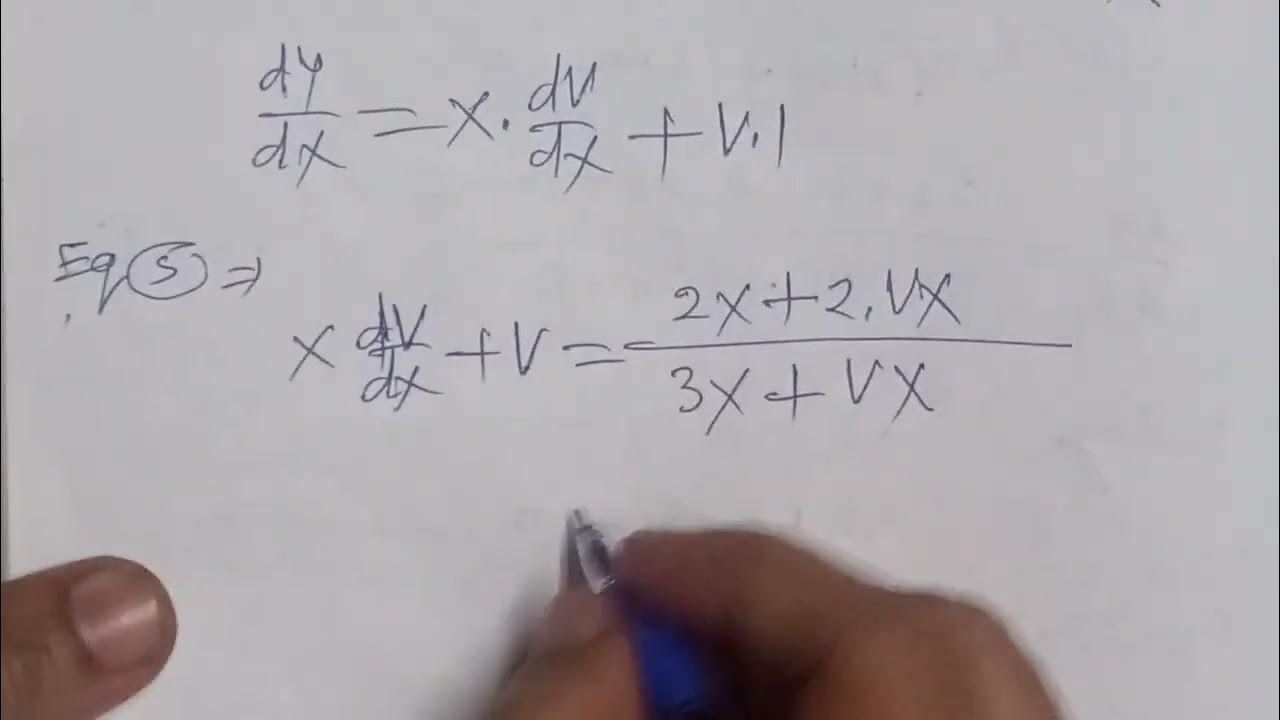 dy/dx = x · dv/dx + v.1
Eq (5) ⇒
x dv/dx + v = (2x + 2.vx)/(3x + vx)